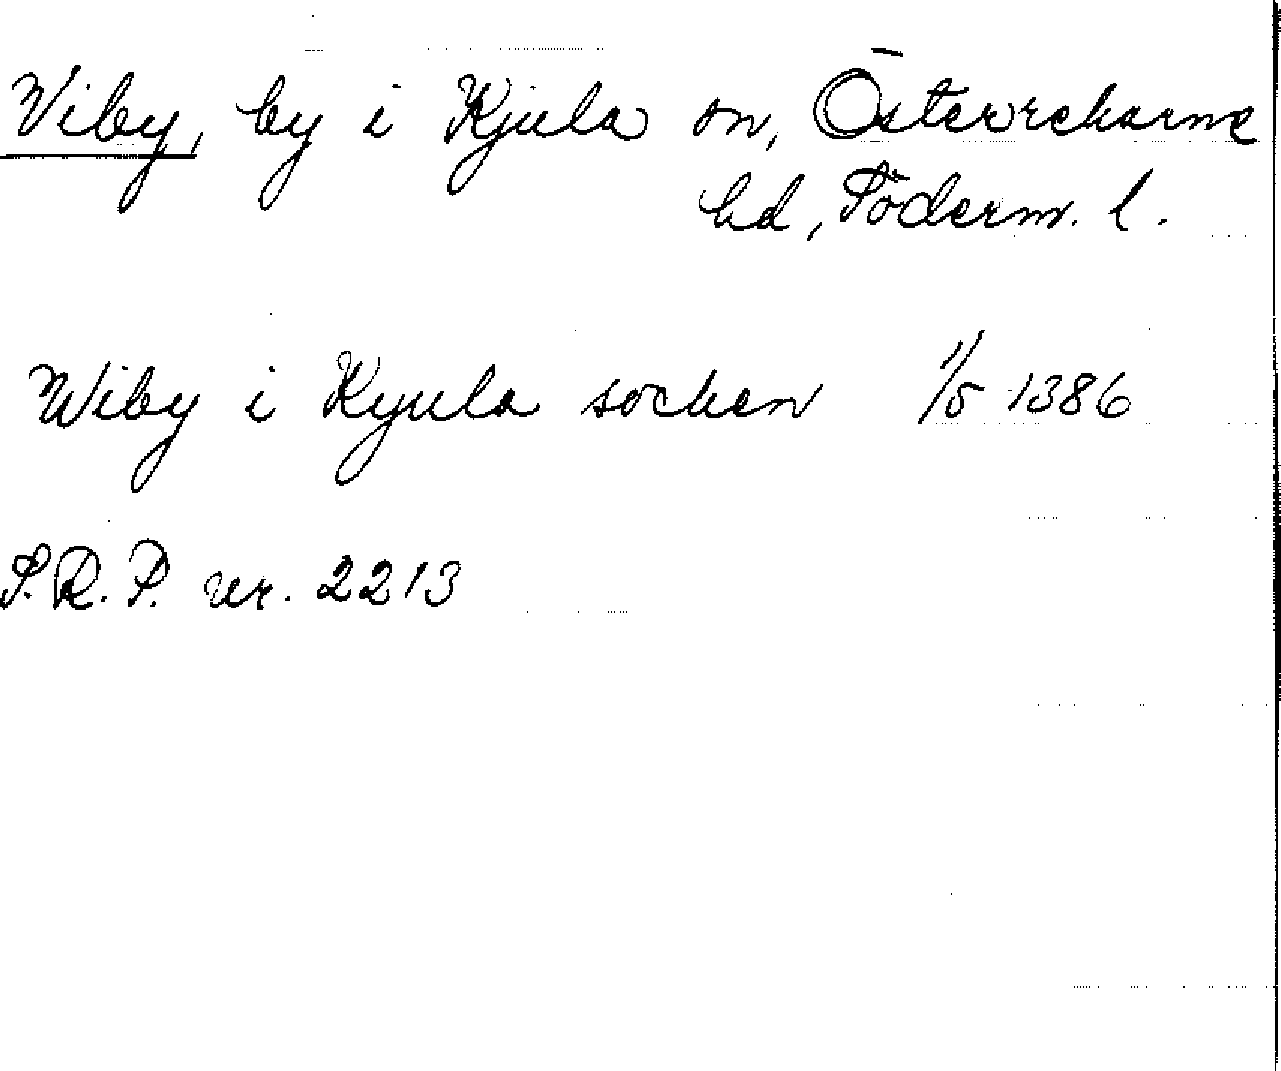 Viby, by i Kjula sn, Österrekarne
hd, Söderm. l.
Wiby i Kyula socken 1/5 1386
S.R.P. nr. 2213